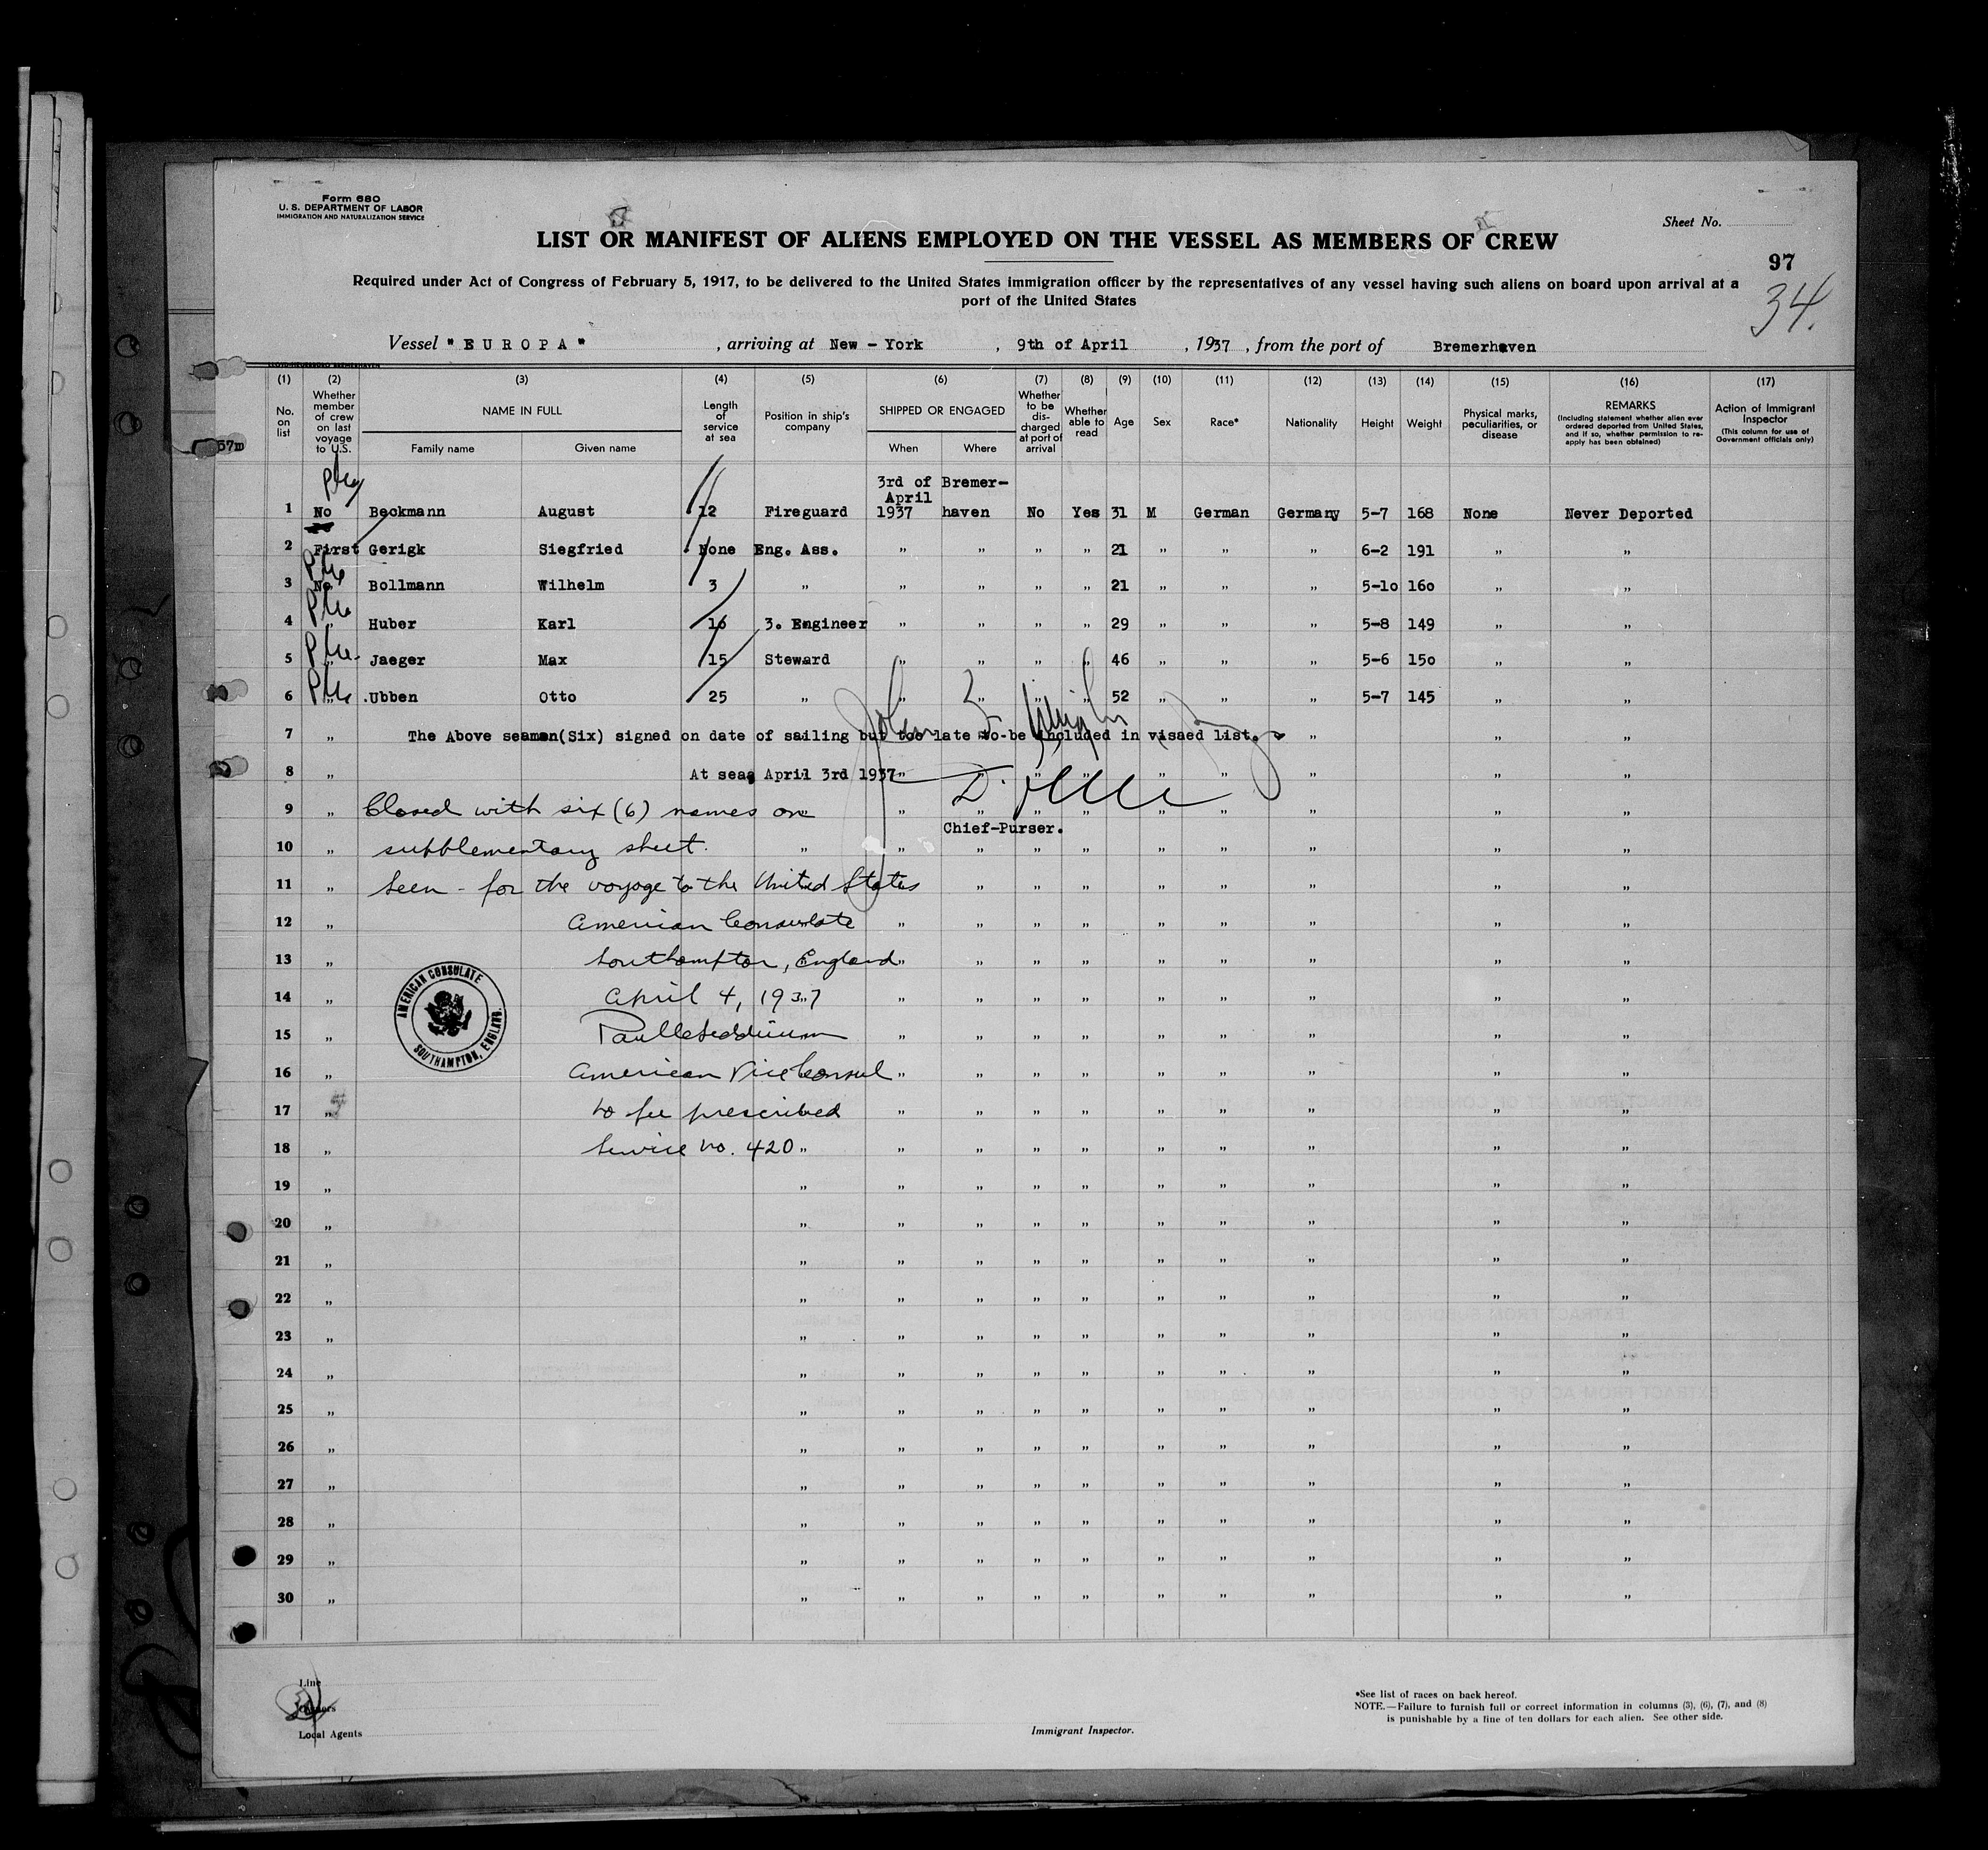 Form 680
U. S. DEPARTMENT OF LABOR
IMMIGRATION AND NATURALIZATION SERVICE
Sheet No.
LIST OR MANIFEST OF ALIENS EMPLOYED ON THE VESSEL AS MEMBERS OF CREW
97
34.
Required under Act of Congress of February 5, 1917, to be delivered to the United States immigration officer by the representatives of any vessel having such aliens on board upon arrival at a
port of the United States
Vessel "EUROPA", arriving at New-York, 9th of April, 1937, from the port of Bremerhaven
(1) (2) (3) (4) (5) (6) (7) (8) (9) (10) (11) (12) (13) (14) (15) (16) (17)
No. on list
Whether member of crew on last voyage to U.S.
NAME IN FULL
Family name Given name
Length of service at sea
Position in ship's company
SHIPPED OR ENGAGED
When Where
Whether to be discharged at port of arrival
Whether able to read
Age
Sex
Race*
Nationality
Height
Weight
Physical marks, peculiarities, or disease
REMARKS
(Including statement whether alien ever ordered deported from United States, and if so, whether permission to reapply has been obtained)
Action of Immigrant Inspector
(This column for use of Government officials only)
3rd of Bremer-
April
1 No Beckmann August 12 Fireguard 1937 haven No Yes 31 M German Germany 5-7 168 None Never Deported
2 First Gerigk Siegfried None Eng. Ass. „ „ „ „ 21 „ „ „ 6-2 191 „ „
3 No Bollmann Wilhelm 3 „ „ „ „ „ 21 „ „ „ 5-10 160 „ „
4 „ Huber Karl 16 3. Engineer „ „ „ „ 29 „ „ „ 5-8 149 „ „
5 „ Jaeger Max 15 Steward „ „ „ „ 46 „ „ „ 5-6 150 „ „
6 „ Ubben Otto 25 „ „ „ „ „ 52 „ „ „ 5-7 145 „ „
7 „ The Above seaman(Six) signed on date of sailing but too late to-be included in visaed list. „ „ „
8 „ At sea, April 3rd 1937 „ „ „ „ „ „ „ „ „
9 „ Closed with six (6) names on „ „ „ „ „ „ „ „ „
Chief-Purser.
10 „ supplementary sheet. „ „ „ „ „ „ „ „ „ „
11 „ Seen - for the voyage to the United States „ „ „ „ „ „ „ „
12 „ American Consulate „ „ „ „ „ „ „ „ „
13 „ Southampton, England „ „ „ „ „ „ „ „ „
14 „ April 4, 1937 „ „ „ „ „ „ „ „ „
15 „ „ „ „ „ „ „ „ „ „
16 „ American Vice Consul „ „ „ „ „ „ „ „ „
17 „ No fee prescribed „ „ „ „ „ „ „ „ „
18 „ Service No. 420 „ „ „ „ „ „ „ „ „ „
AMERICAN CONSULATE
SOUTHAMPTON, ENGLAND.
19 „ „ „ „ „ „ „ „ „ „ „
20 „ „ „ „ „ „ „ „ „ „ „
21 „ „ „ „ „ „ „ „ „ „ „
22 „ „ „ „ „ „ „ „ „ „ „
23 „ „ „ „ „ „ „ „ „ „ „
24 „ „ „ „ „ „ „ „ „ „ „
25 „ „ „ „ „ „ „ „ „ „ „
26 „ „ „ „ „ „ „ „ „ „ „
27 „ „ „ „ „ „ „ „ „ „ „
28 „ „ „ „ „ „ „ „ „ „ „
29 „ „ „ „ „ „ „ „ „ „ „
30 „ „ „ „ „ „ „ „ „ „ „
Line
Owners
Local Agents
Immigrant Inspector.
*See list of races on back hereof.
NOTE.—Failure to furnish full or correct information in columns (3), (6), (7), and (8)
is punishable by a fine of ten dollars for each alien. See other side.